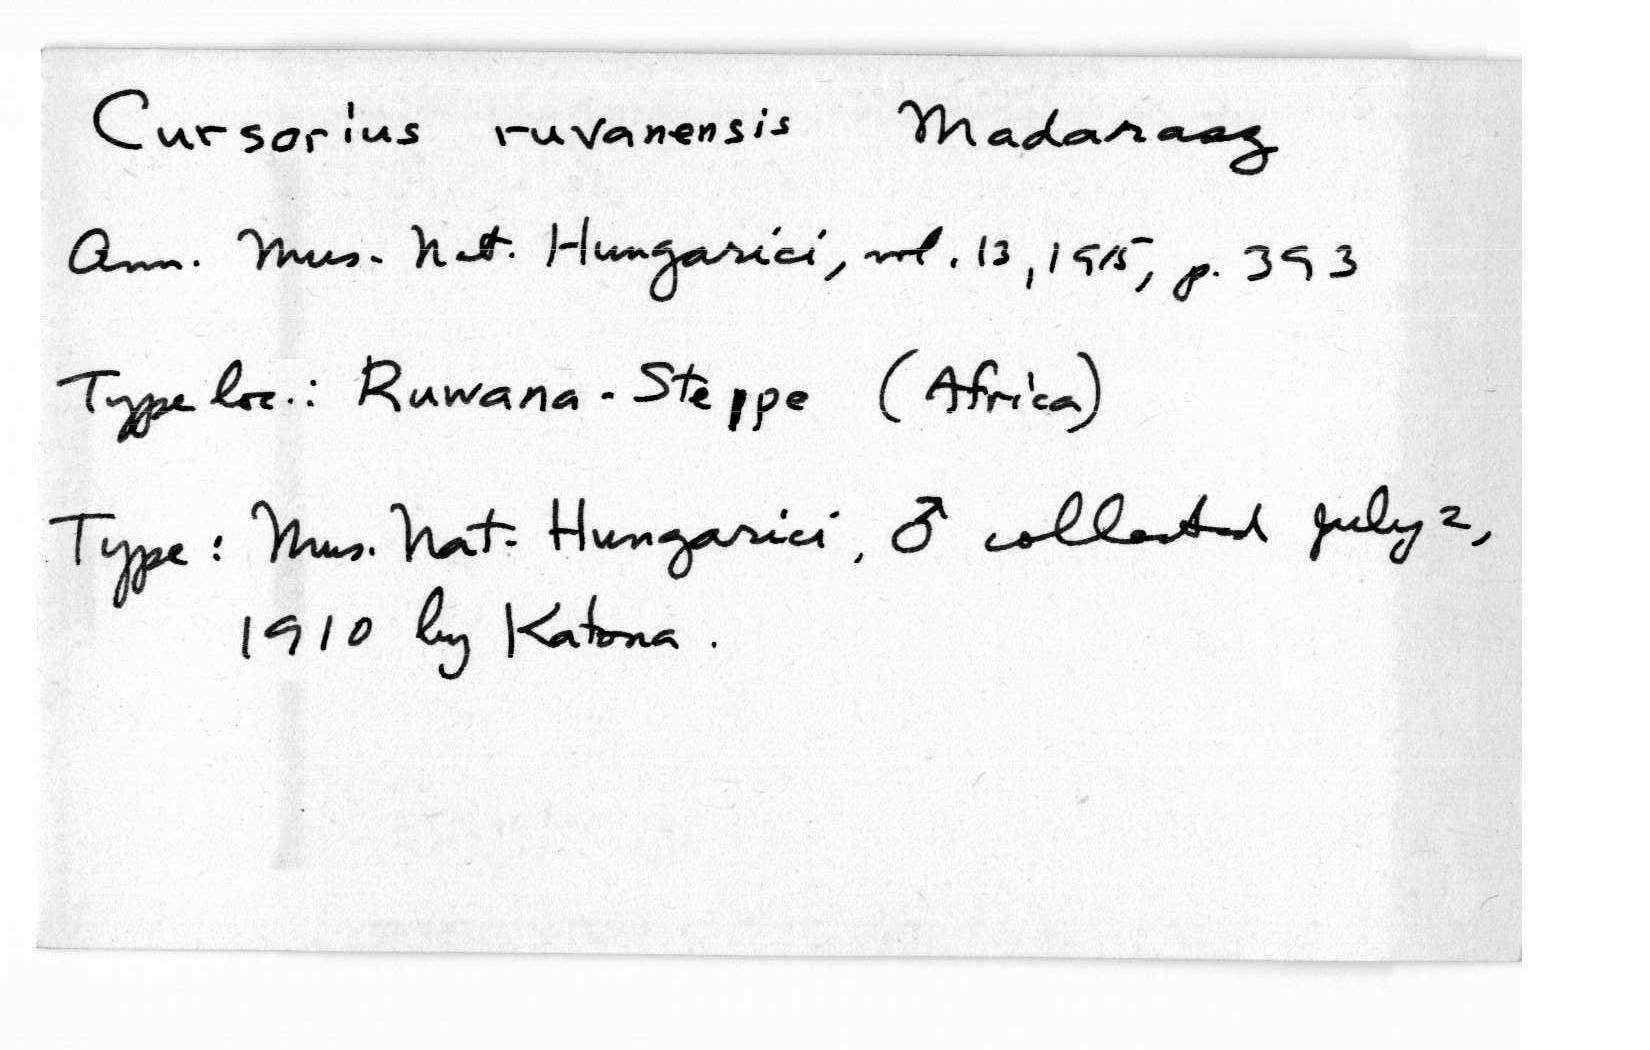 Cursorius ruvanensis Madarasz
Ann. Mus. Nat. Hungarici, vol. 13, 1915, p. 393
Type loc.: Ruwana-Steppe (Africa)
Type: Mus. Nat. Hungarici, ♂ collected July 2,
1910 by Katona.